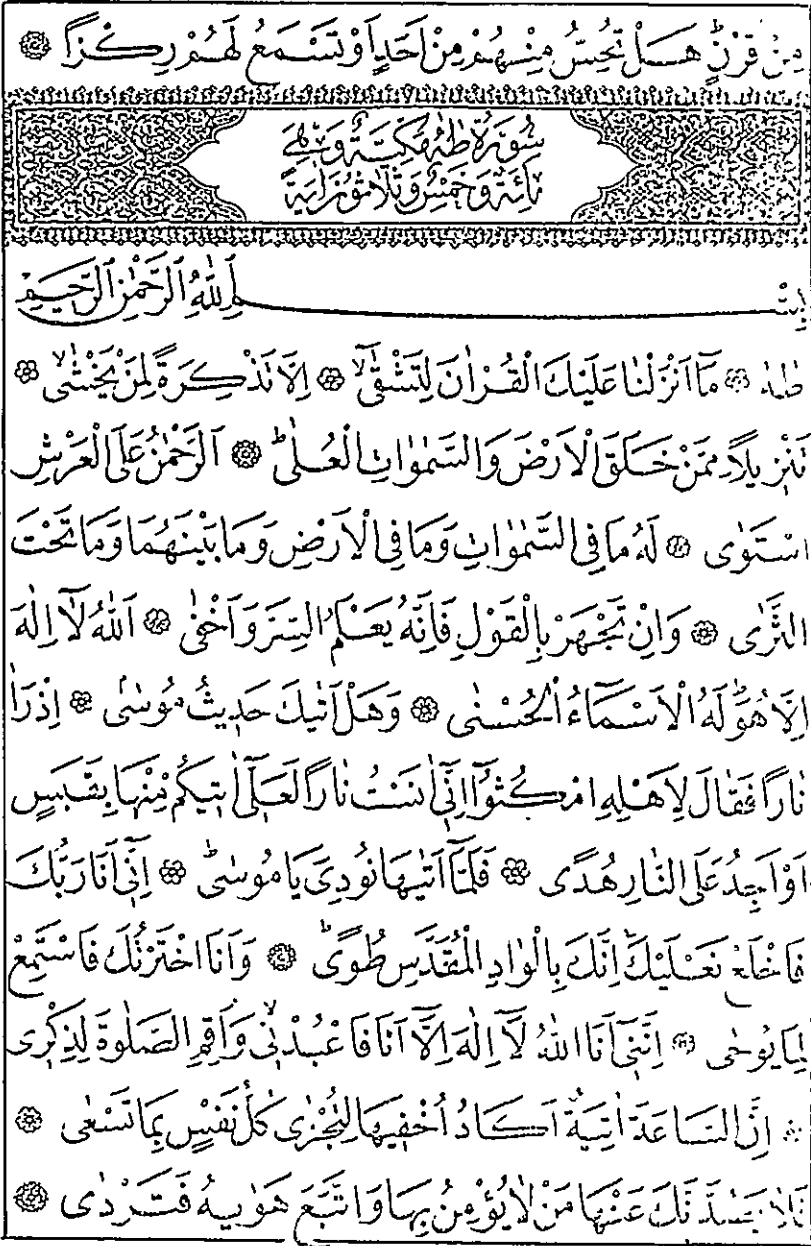 مِنْ قَرْنٍ هَلْ تُحِسُّ مِنْهُمْ مِنْ اَحَدٍ اَوْ تَسْمَعُ لَهُمْ رِكْزًا
سُورَةُ طٰهٰ مَكِّيَّةٌ وَهِيَ
مِائَةٌ وَخَمْسٌ وَثَلَاثُونَ اٰيَةً
بِسْمِ اللّٰهِ الرَّحْمٰنِ الرَّحِيمِ
طٰهٰ مَٓا اَنْزَلْنَا عَلَيْكَ الْقُرْاٰنَ لِتَشْقٰىۙ اِلَّا تَذْكِرَةً لِمَنْ يَخْشٰىۙ
تَنْزِيلًا مِمَّنْ خَلَقَ الْاَرْضَ وَالسَّمٰوَاتِ الْعُلٰىۜ اَلرَّحْمٰنُ عَلَى الْعَرْشِ
اسْتَوٰى لَهُ مَا فِي السَّمٰوَاتِ وَمَا فِي الْاَرْضِ وَمَا بَيْنَهُمَا وَمَا تَحْتَ
الثَّرٰى وَاِنْ تَجْهَرْ بِالْقَوْلِ فَاِنَّهُ يَعْلَمُ السِّرَّ وَاَخْفٰى اَللّٰهُ لَٓا اِلٰهَ
اِلَّا هُوَۜ لَهُ الْاَسْمَٓاءُ الْحُسْنٰى وَهَلْ اَتٰيكَ حَدِيثُ مُوسٰىۢ اِذْ رَاٰ
نَارًا فَقَالَ لِاَهْلِهِ امْكُثُٓوا اِنِّٓي اٰنَسْتُ نَارًا لَعَلِّٓي اٰتِيكُمْ مِنْهَا بِقَبَسٍ
اَوْ اَجِدُ عَلَى النَّارِ هُدًى فَلَمَّٓا اَتٰيهَا نُودِيَ يَا مُوسٰىۜ اِنِّٓي اَنَا رَبُّكَ
فَاخْلَعْ نَعْلَيْكَۚ اِنَّكَ بِالْوَادِ الْمُقَدَّسِ طُوًىۜ وَاَنَا اخْتَرْتُكَ فَاسْتَمِعْ
لِمَا يُوحٰى اِنَّنِٓي اَنَا اللّٰهُ لَٓا اِلٰهَ اِلَّٓا اَنَا فَاعْبُدْنِيۙ وَاَقِمِ الصَّلٰوةَ لِذِكْرِي
اِنَّ السَّاعَةَ اٰتِيَةٌ اَكَادُ اُخْفِيهَا لِتُجْزٰى كُلُّ نَفْسٍ بِمَا تَسْعٰى
فَلَا يَصُدَّنَّكَ عَنْهَا مَنْ لَا يُؤْمِنُ بِهَا وَاتَّبَعَ هَوٰيهُ فَتَرْدٰى